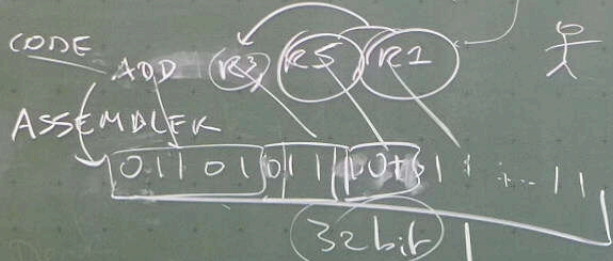 CODE
ADD R3 R5 R1
ASSEMBLER
01101 011 001 1 1 ... 11
32 bit